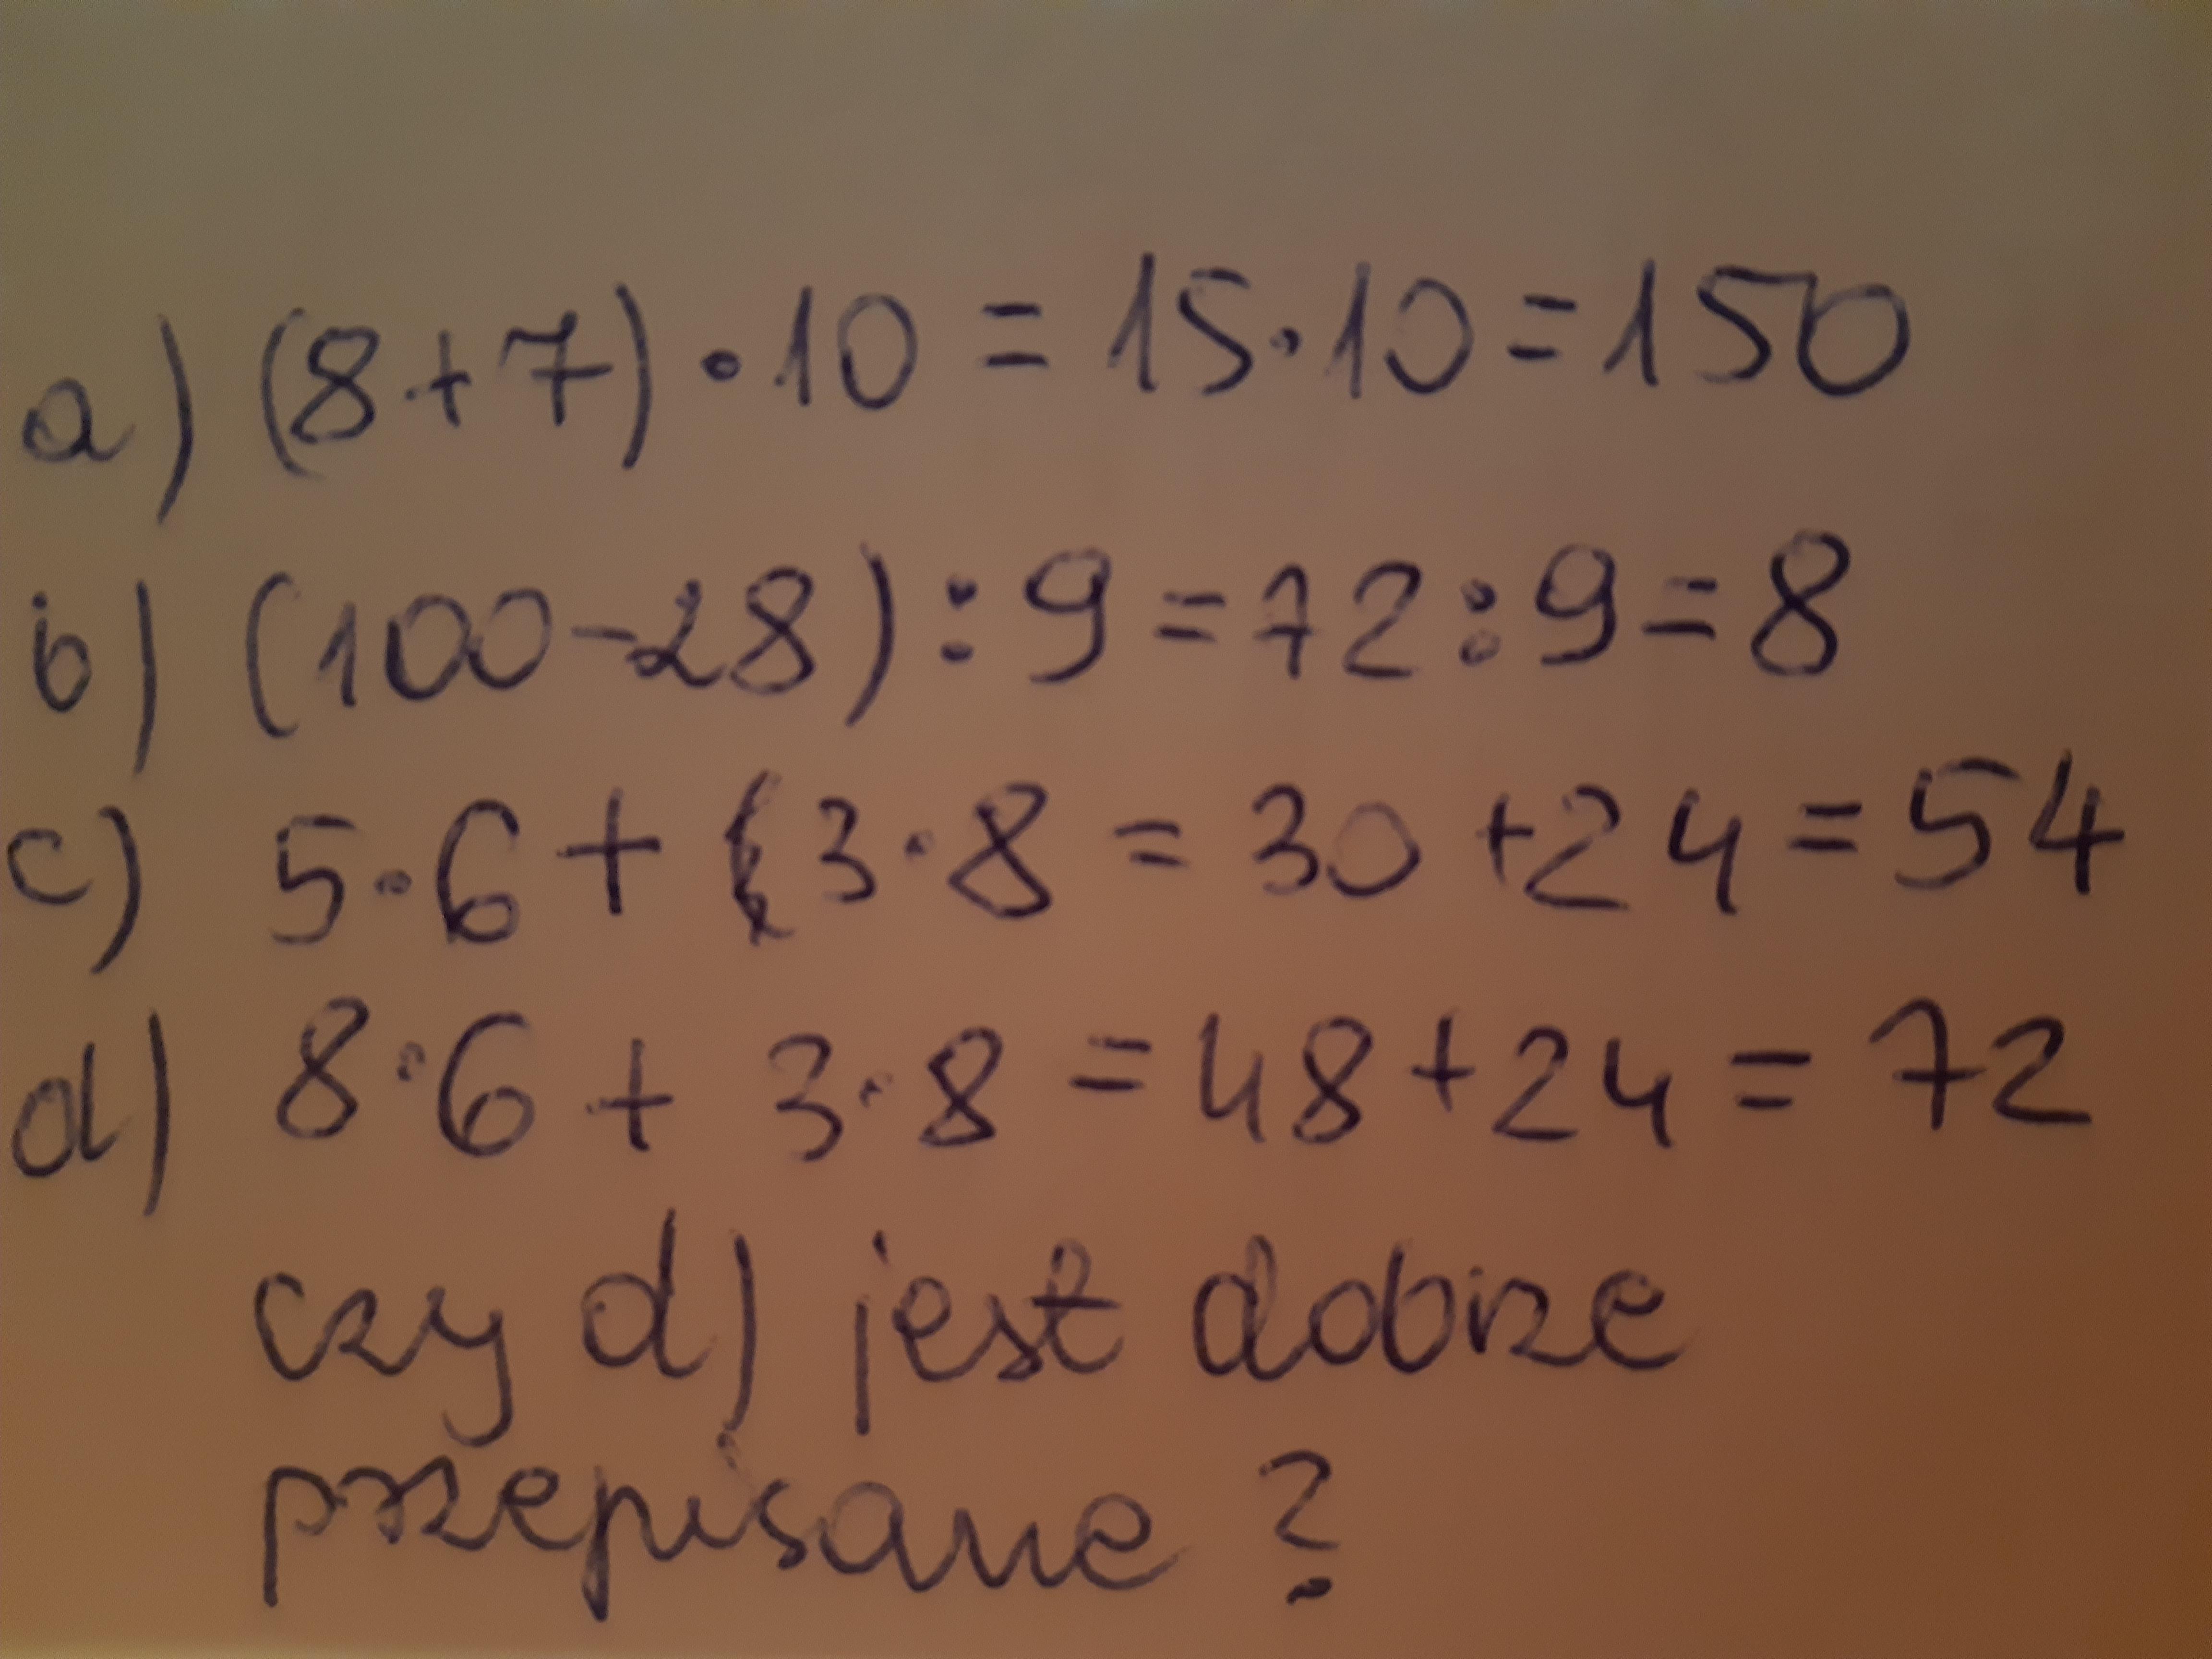 a) (8+7)•10=15•10=150
b) (100-28):9=72:9=8
c) 5•6+3•8=30+24=54
d) 8•6+3•8=48+24=72
czy d) jest dobrze
przepisane?